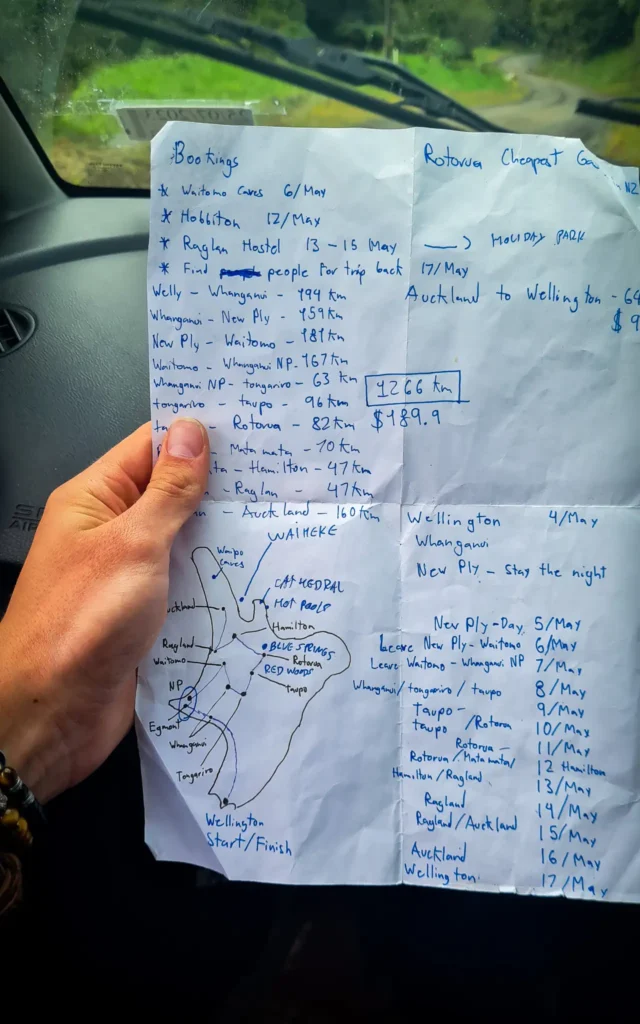 Bookings
* Waitomo Caves 6/May
* Hobbiton 12/May
* Raglan Hostel 13 - 15 May
* Find people for trip back 17/May
Welly - Whanganui - 194 km
Whanganui - New Ply - 159km
New Ply - Waitomo - 181km
Waitomo - Whanganui NP - 167km
Whanganui NP - tongariro - 63 km
tongariro - taupo - 96km
- Rotorua - 82km
- Matamata - 70km
ta - Hamilton - 47km
- Raglan - 47km
- Auckland - 160km
1266 km
$189.9
Rotorua Cheapest Ga
NZ
HOLIDAY PARK
Auckland to Wellington - 64
$ 9
WAIHEKE
Waipo caves
CATHEDRAL
HOT POOLS
Auckland
Hamilton
BLUE SPRINGS
Ragland
Rotorua
Waitomo
REDWOODS
Taupo
NP
Egmont
Whanganui
Tongariro
Wellington
Start/Finish
Wellington 4/May
Whanganui
New Ply - Stay the night
New Ply-Day 5/May
Leave New Ply-Waitomo 6/May
Leave Waitomo - Whanganui NP 7/May
Whangavi/tongariro/taupo 8/May
Taupo - 9/May
taupo/Rotora 10/May
Rotorua - 11/May
Rotorua/Matamata/ 12 Hamilton
Hamilton/Ragland 13/May
Ragland 14/May
Ragland/Auckland 15/May
Auckland 16/May
Wellington 17/May